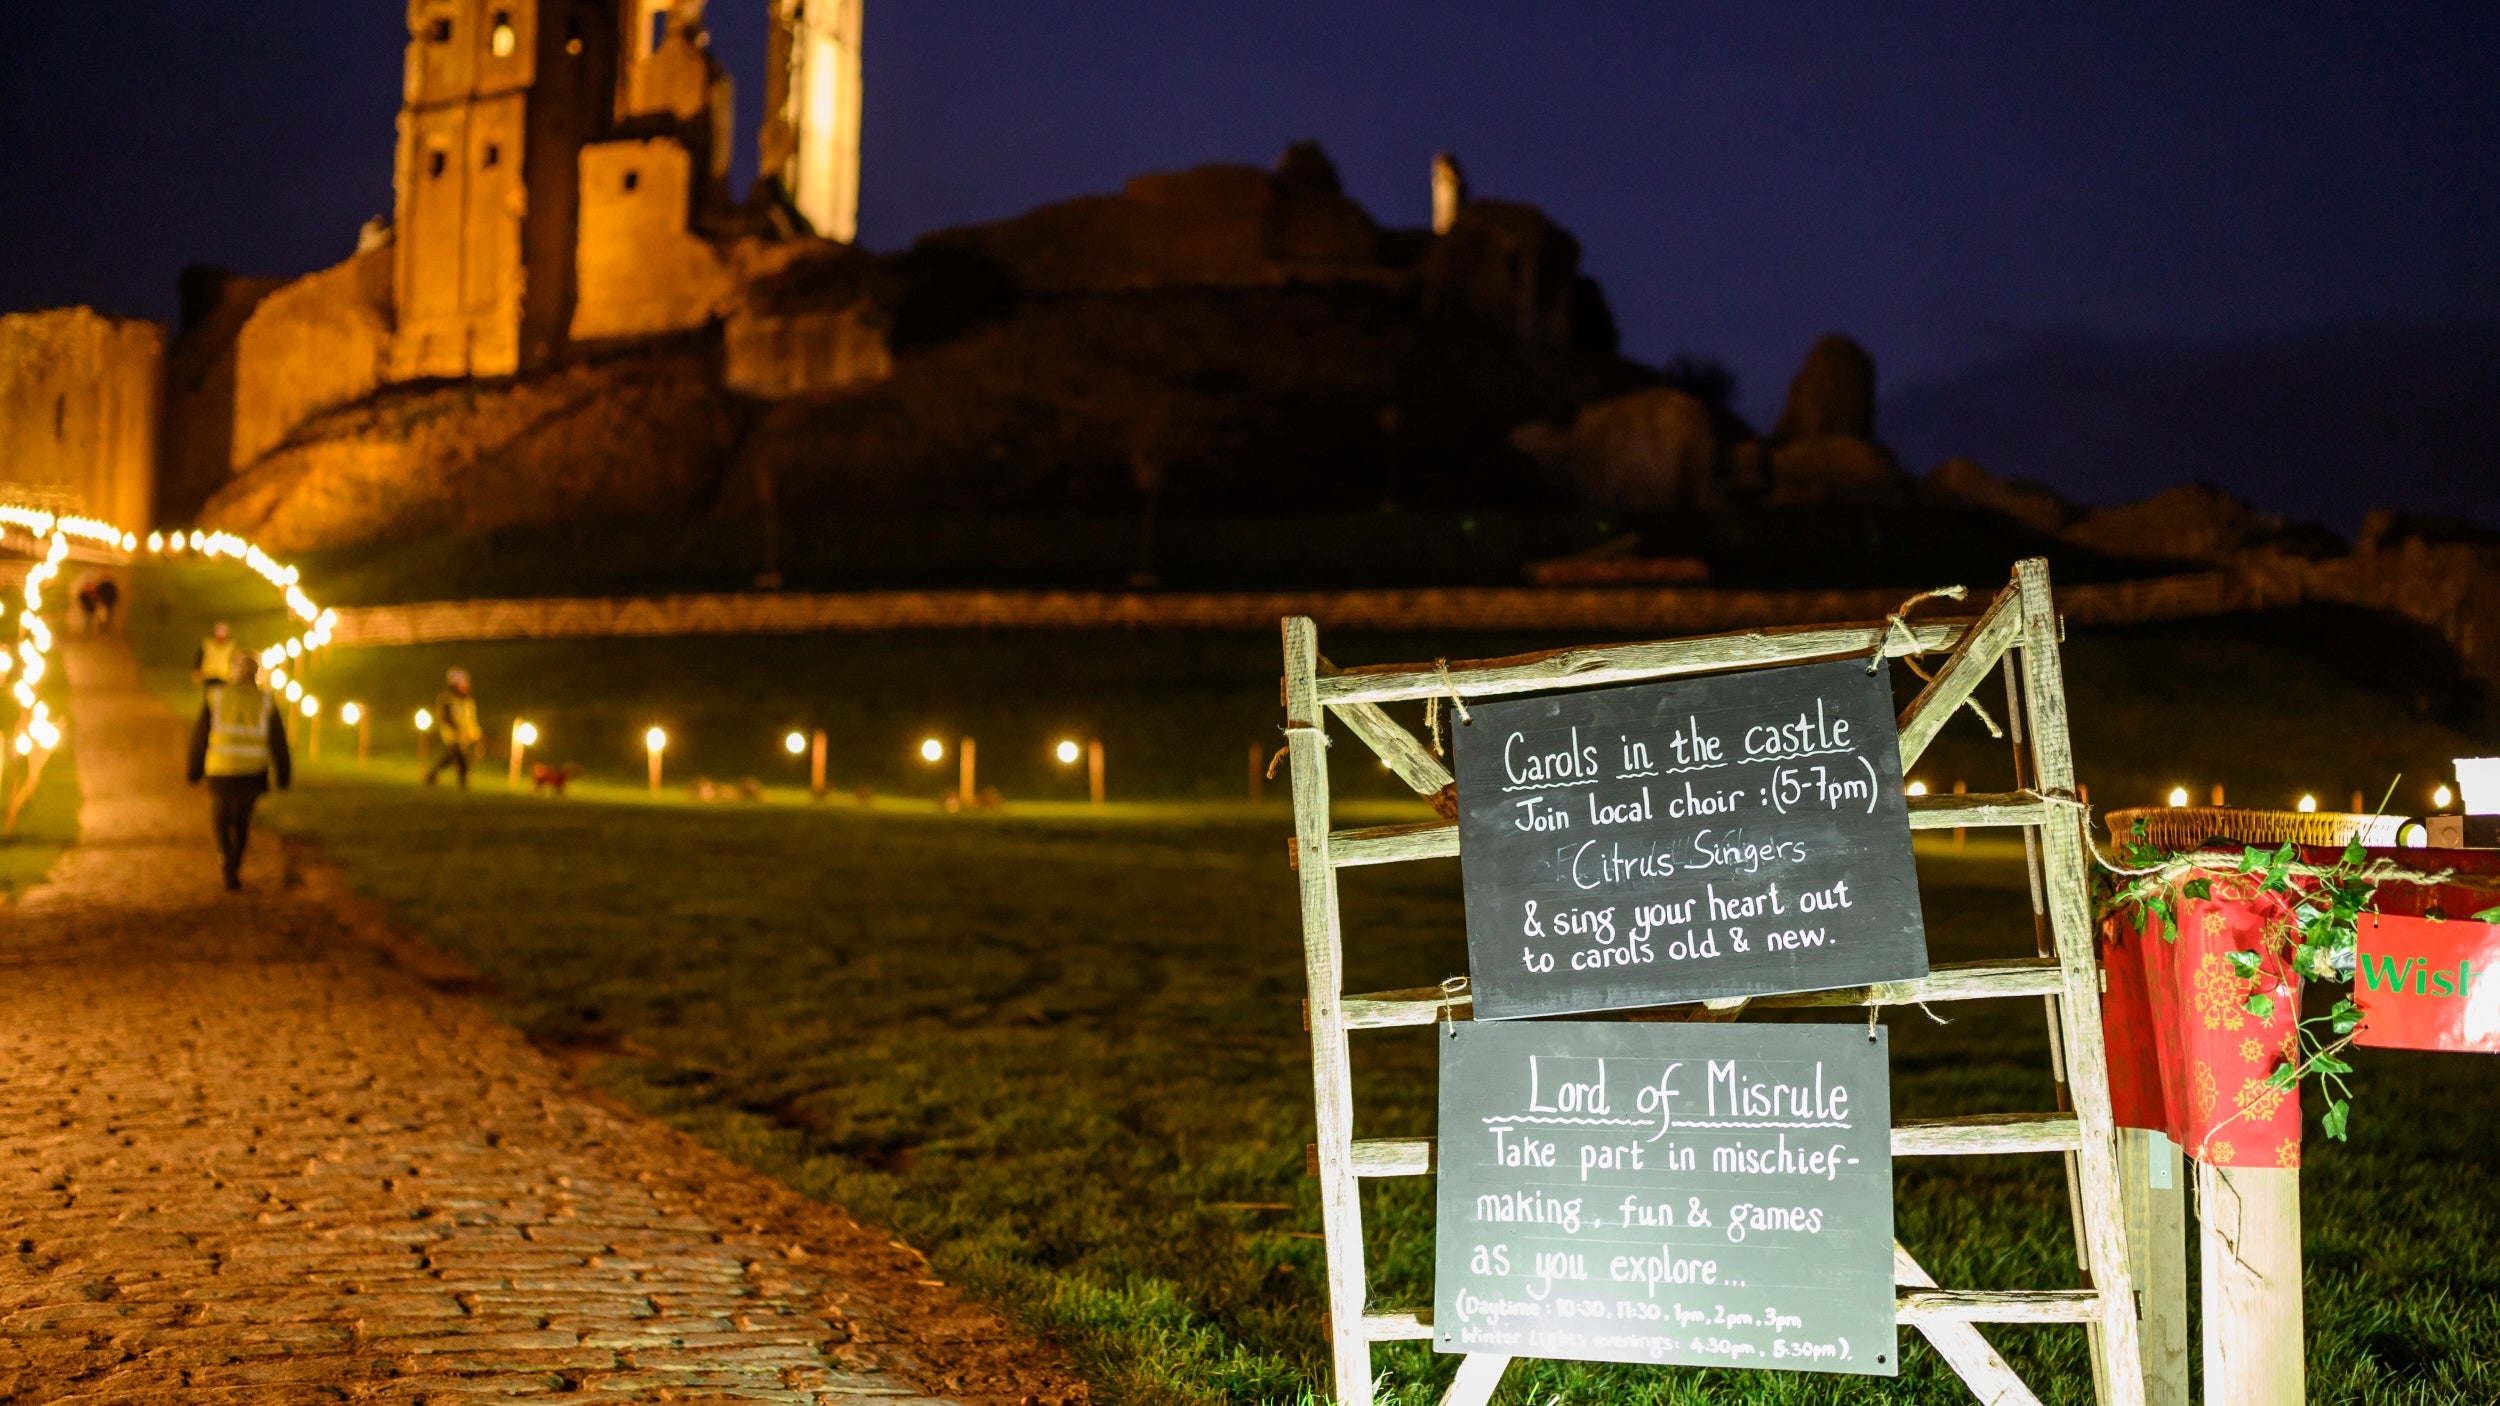 Carols in the castle
Join local choir : (5-7pm)
Citrus Singers
& sing your heart out
to carols old & new.
Lord of Misrule
Take part in mischief-
making, fun & games
as you explore...
(Daytime : 10:30, 11:30, 1pm, 2pm, 3pm
Winter Lights evenings: 4:30pm, 5:30pm).
Wish